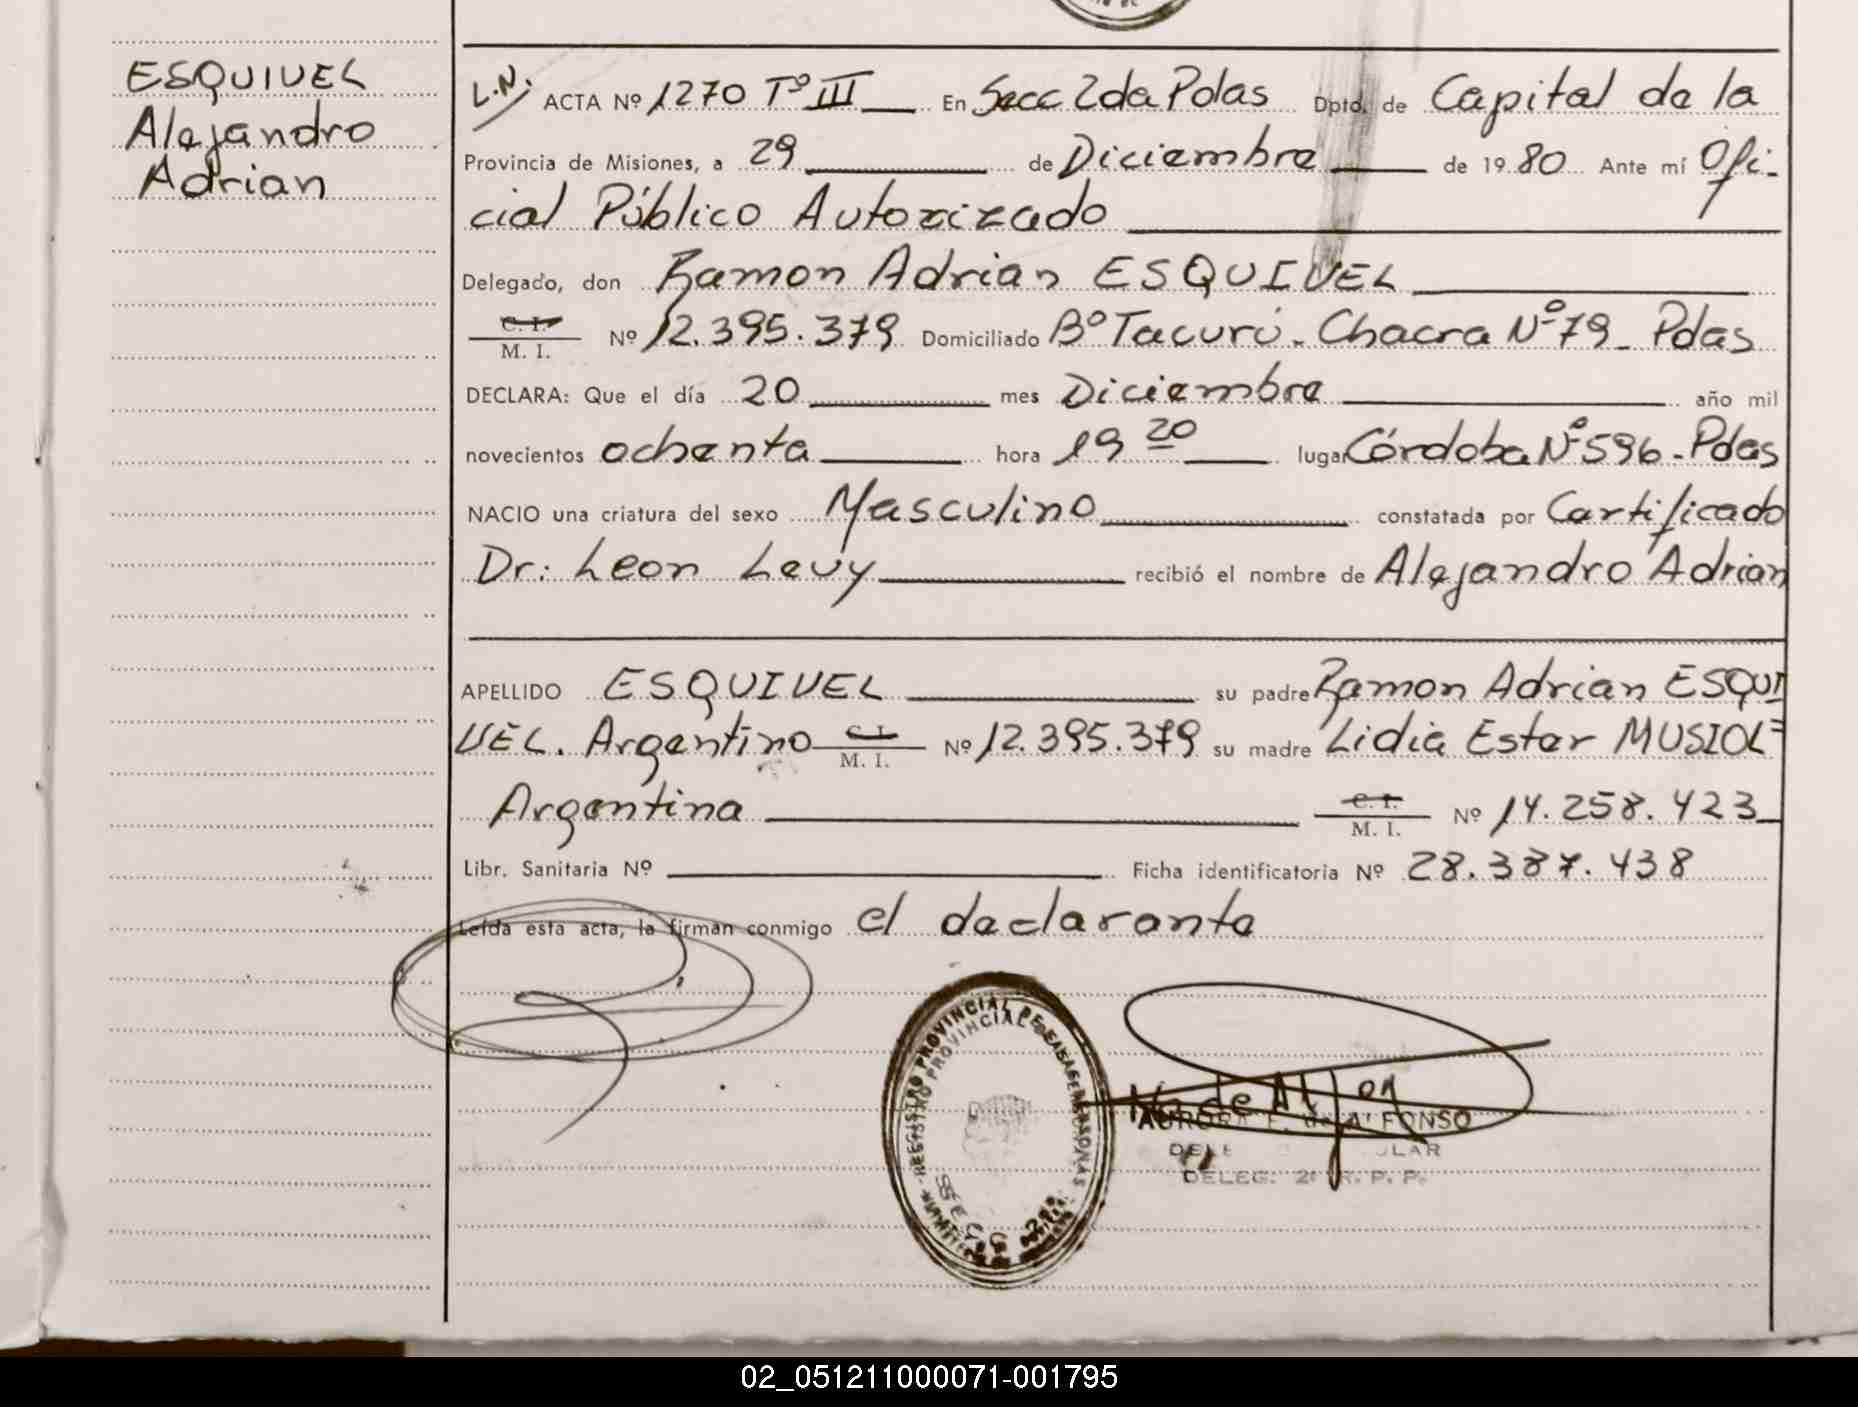 ESQUIVEL
Alejandro
Adrian
L.N. ACTA Nº 1270 Tº III En Secc 2da Pdas Dpto. de Capital de la
Provincia de Misiones, a 29 de Diciembre de 1980 Ante mí Ofi-
cial Público Autorizado
Delegado, don Ramon Adrian ESQUIVEL
C. I.
M. I. Nº 12.395.379 Domiciliado Bº Tacurú - Chacra Nº 79 - Pdas
DECLARA: Que el día 20 mes Diciembre año mil
novecientos ochenta hora 19 20 lugar Córdoba Nº 596 - Pdas
NACIO una criatura del sexo Masculino constatada por Certificado
Dr: Leon Levy recibió el nombre de Alejandro Adrian
APELLIDO ESQUIVEL su padre Ramon Adrian ESQUI
VEL. Argentino C. I. M. I. Nº 12.395.379 su madre Lidia Ester MUSIOL-
Argentina C. I. M. I. Nº 14.258.423
Libr. Sanitaria Nº Ficha identificatoria Nº 28.387.438
Leída esta acta, la firman conmigo el declarante
REGISTRO PROVINCIAL DE LAS PERSONAS
AURORA F. de ALFONSO
DELEG. 2ª R. P. P.
02_051211000071-001795